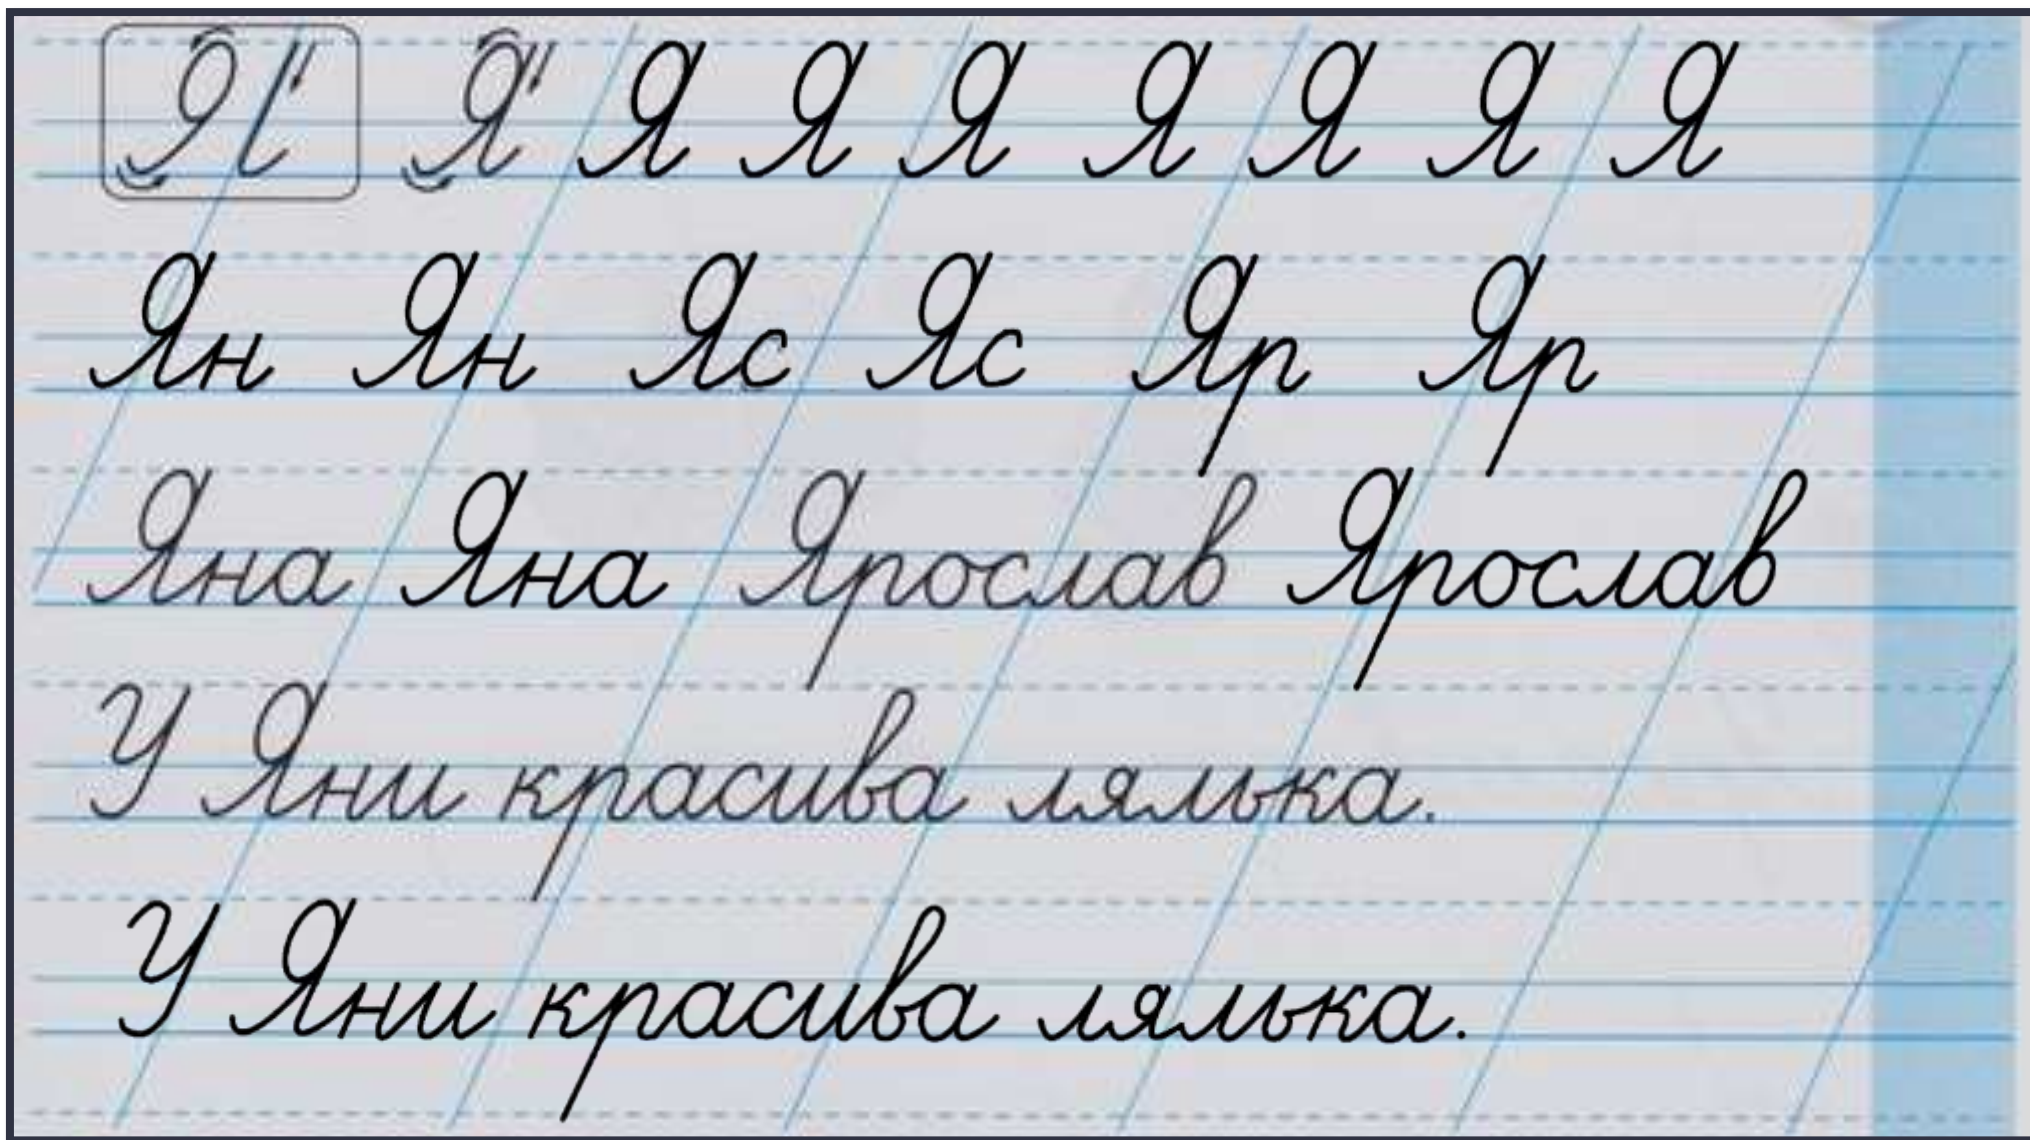 Я Я Я Я Я Я Я Я Я
Ян Ян Яс Яс Яр Яр
Яна Яна Ярослав Ярослав
У Яни красива лялька.
У Яни красива лялька.